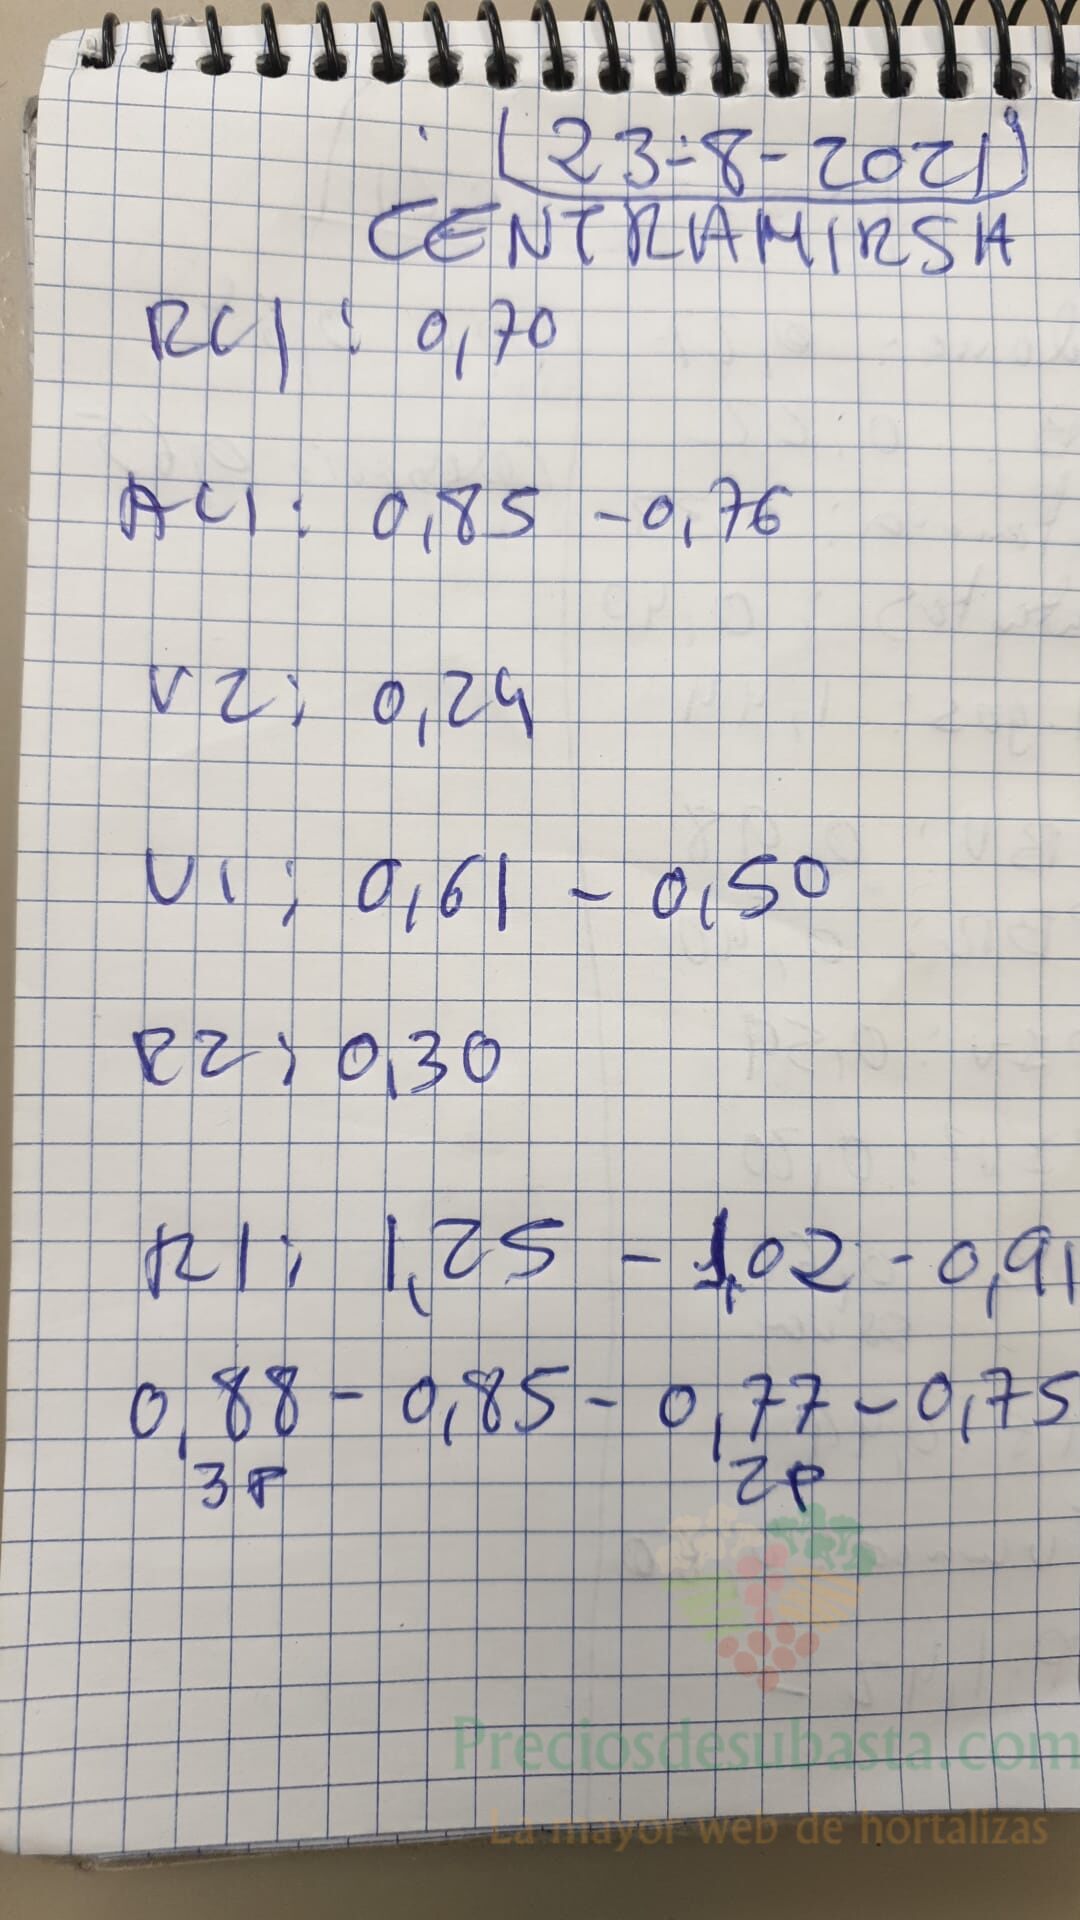 (23-8-2021)
CENTRAMIRSA
RC1: 0,70
AC1: 0,85 - 0,76
V2: 0,24
V1: 0,61 - 0,50
R2: 0,30
R1: 1,25 - 1,02 - 0,91
0,88 - 0,85 - 0,77 - 0,75
3P 2P
Preciosdesubasta.com
La mayor web de hortalizas